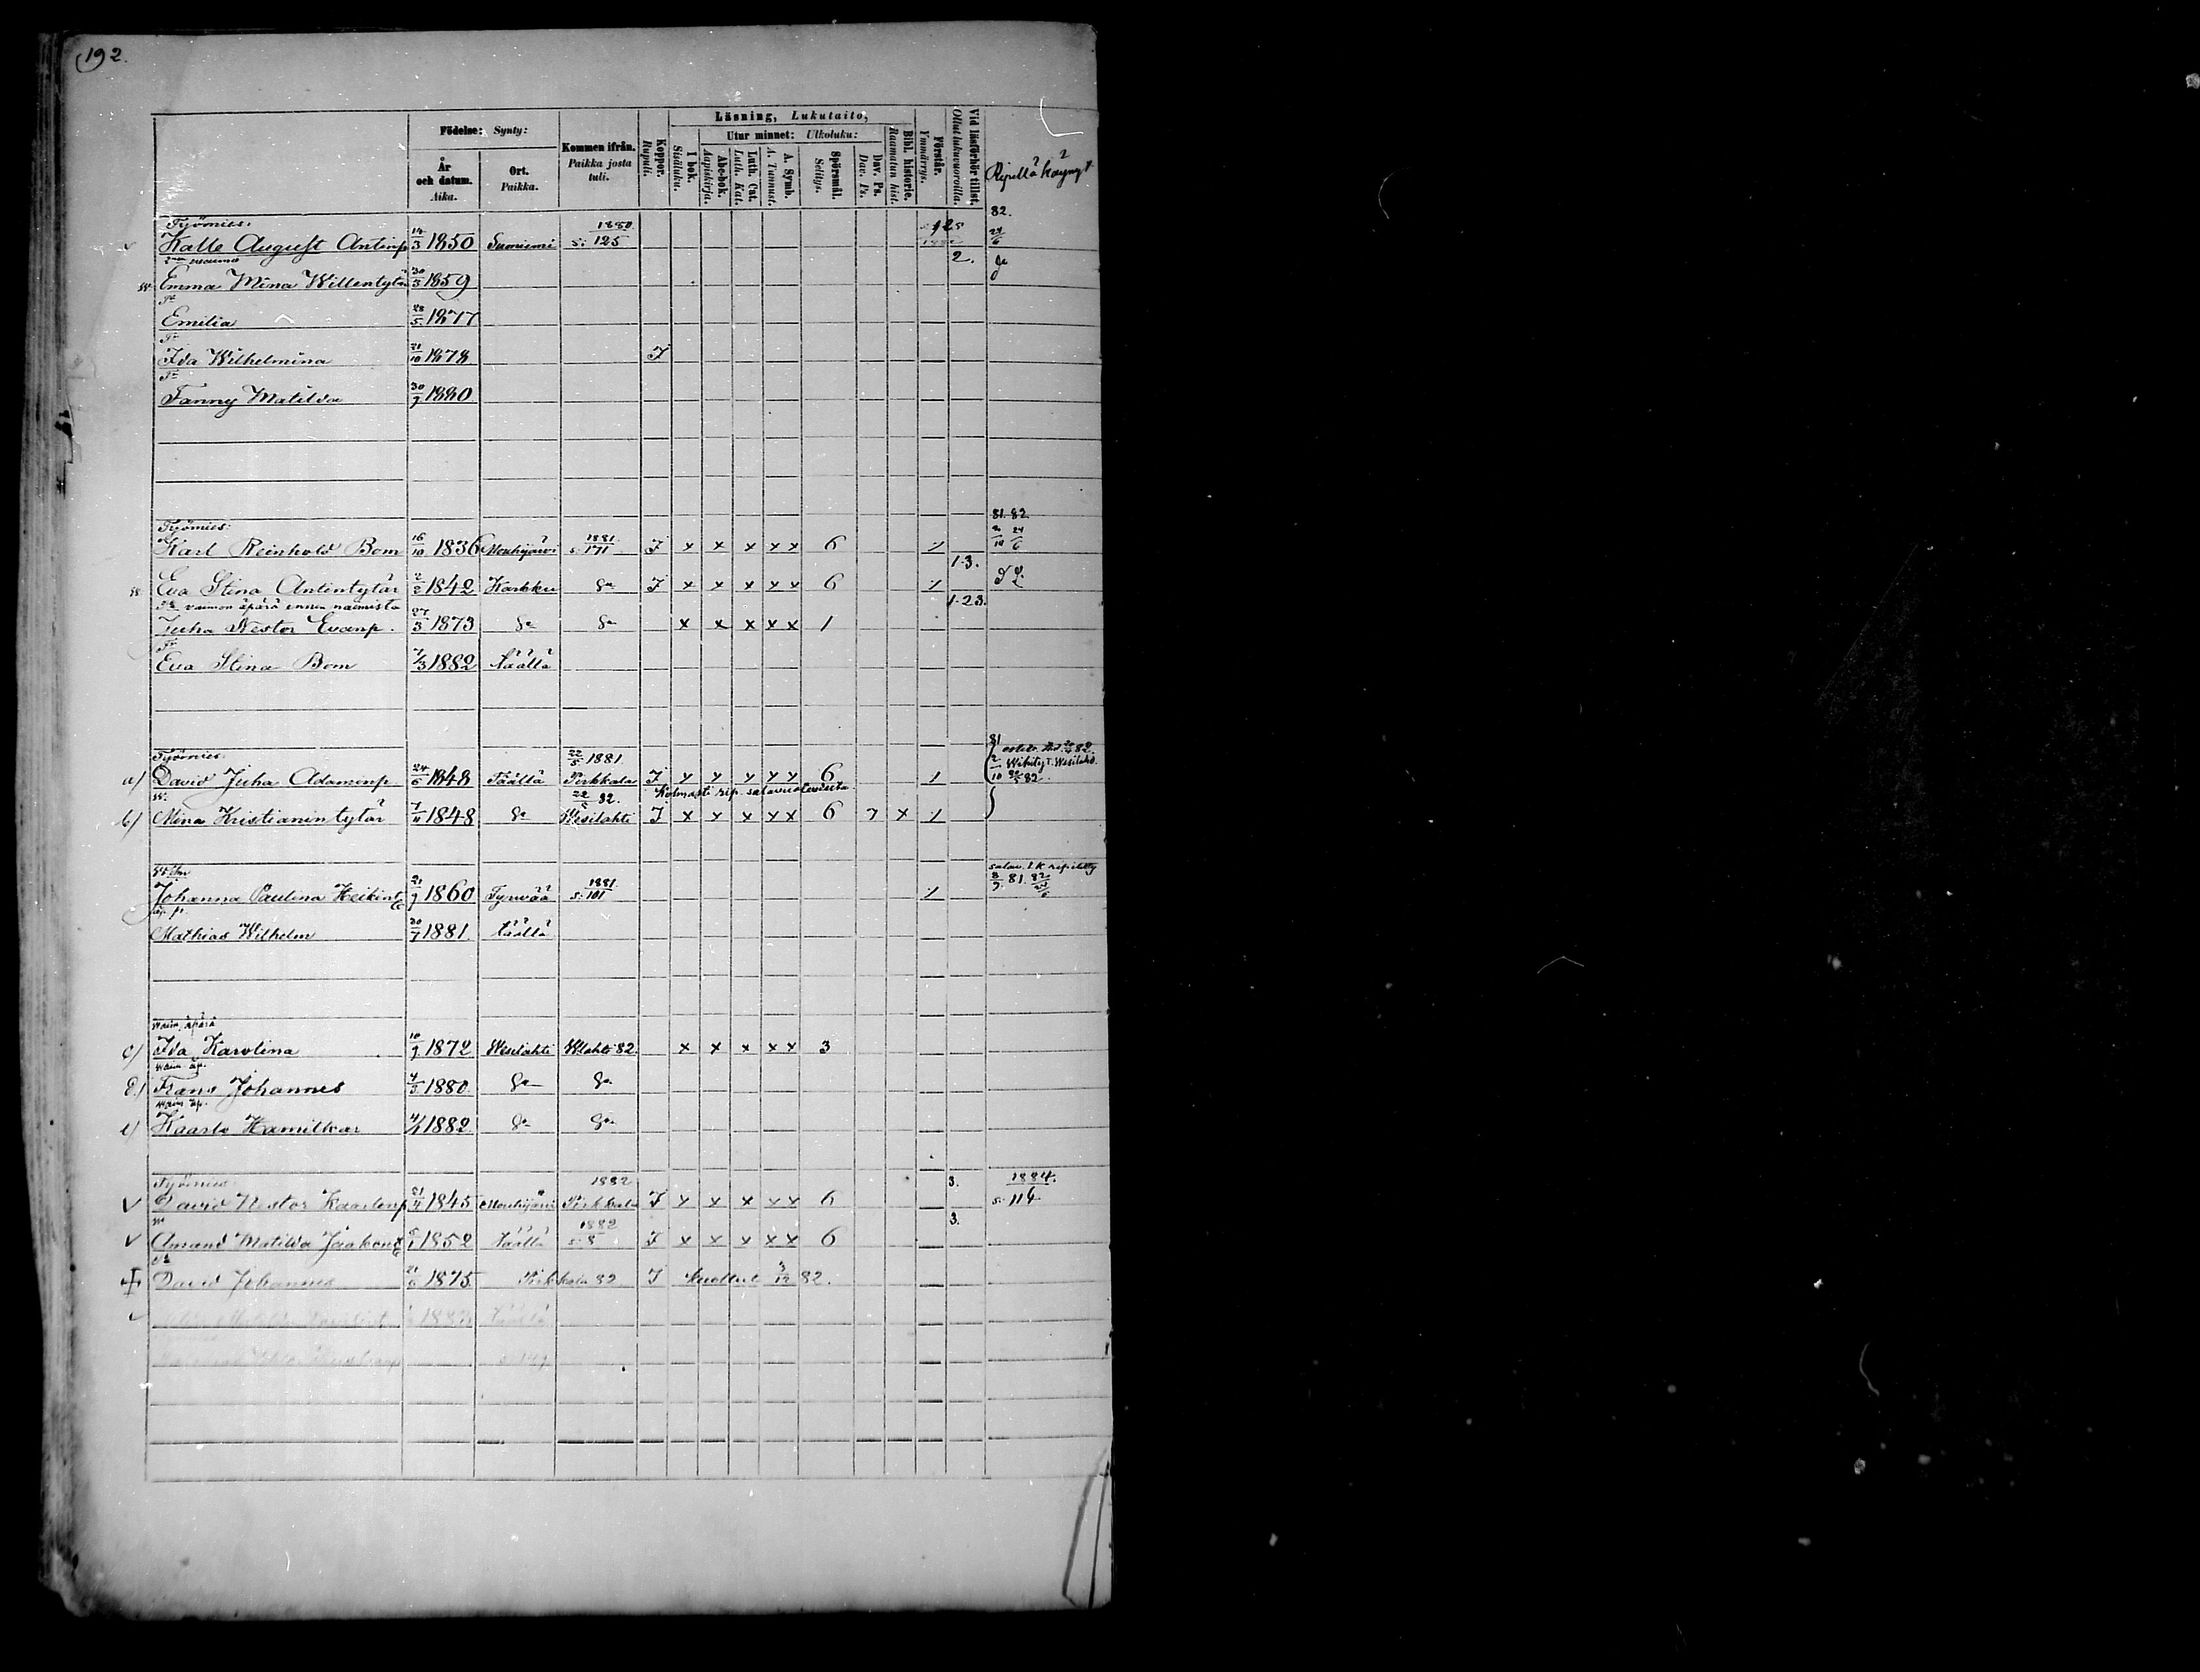 192.
Födelse: Synty:
År och datum. Aika.
Ort. Paikka.
Kommen ifrån. Paikka josta tuli.
Koppor. Rupuli.
Läsning, Lukutaito,
I bok. Sisäluku.
Utur minnet: Ulkoluku:
Abc-bok. Aapiskirja.
Luth. Cat. Luth. Kat.
A. Symb. A. Tunnust.
Spörsmål. Selitys.
Dav. Ps. Dav. Ps.
Bibl. historie. Raamatun hist.
Förstår. Ymmärrys.
Vid läsförhör tillst. Ollut lukuvuoroilla.
Ripillä käynyt
82.
Työmies: 1880
Kalle August Antinp 14/3 1850 Suoniemi s: 125 24/6
2.
W. Emma Mina Willentytär 30/5 1859
Tr
Emilia 28/5 1877
Tr
Ida Wilhelmina 21/10 1878 I
Tr
Fanny Matilda 30/9 1880
Työmies: 81. 82
Karl Reinhold Bom 16/10 1836 Mouhijärvi 1881 s: 171 I x x x x x 6 / 2/10 24/6
1.3.
Eva Stina Antintytär 2/2 1842 Karkku I x x x x x 6 /
vaimon äpärä ennen naimista 1.23.
Juha Nestor Evanp. 27/3 1873 x x x x x 1
Tr
Eva Stina Bom 7/3 1882 täällä
Työmies 22/5 1881 81
a) David Juha Adaminp 24/6 1848 Täällä Pirkkala I x x x x x 6 / 2/10
W. 22/5 82. Kolmasti rip. salavuoteudesta
b) Mina Kristianintytär 7/11 1848 Wesilahti I x x x x x 6 7 x /
salav. 1 K
Johanna Paulina Heikint 21/9 1860 Tyrvää 1881 s: 101 / 8/9 81. 82
äp. p.
Mathias Wilhelm 20/7 1881. täällä
Waim. äpärä
c) Ida Karolina 10/9 1872 Wesilahti Wlahti 82. x x x x x 3
Waim. äp.
d) Frans Johannes 4/3 1880.
Waim. äp.
e) Kaarlo Hamilkar 4/1 1882
Työmies 1882 3. 1884.
V David Nestor Kaarlenp 21/4 1845 Mouhijärvi Pirkkala I x x x x x 6 s: 114
1882 3.
V Amand Matilda Jaakont 5/1 1852 täällä s: 8 I x x x x x 6
David Johannes 21/6 1875. Pirkkala 82 I kuollut 3/12 82.
täällä